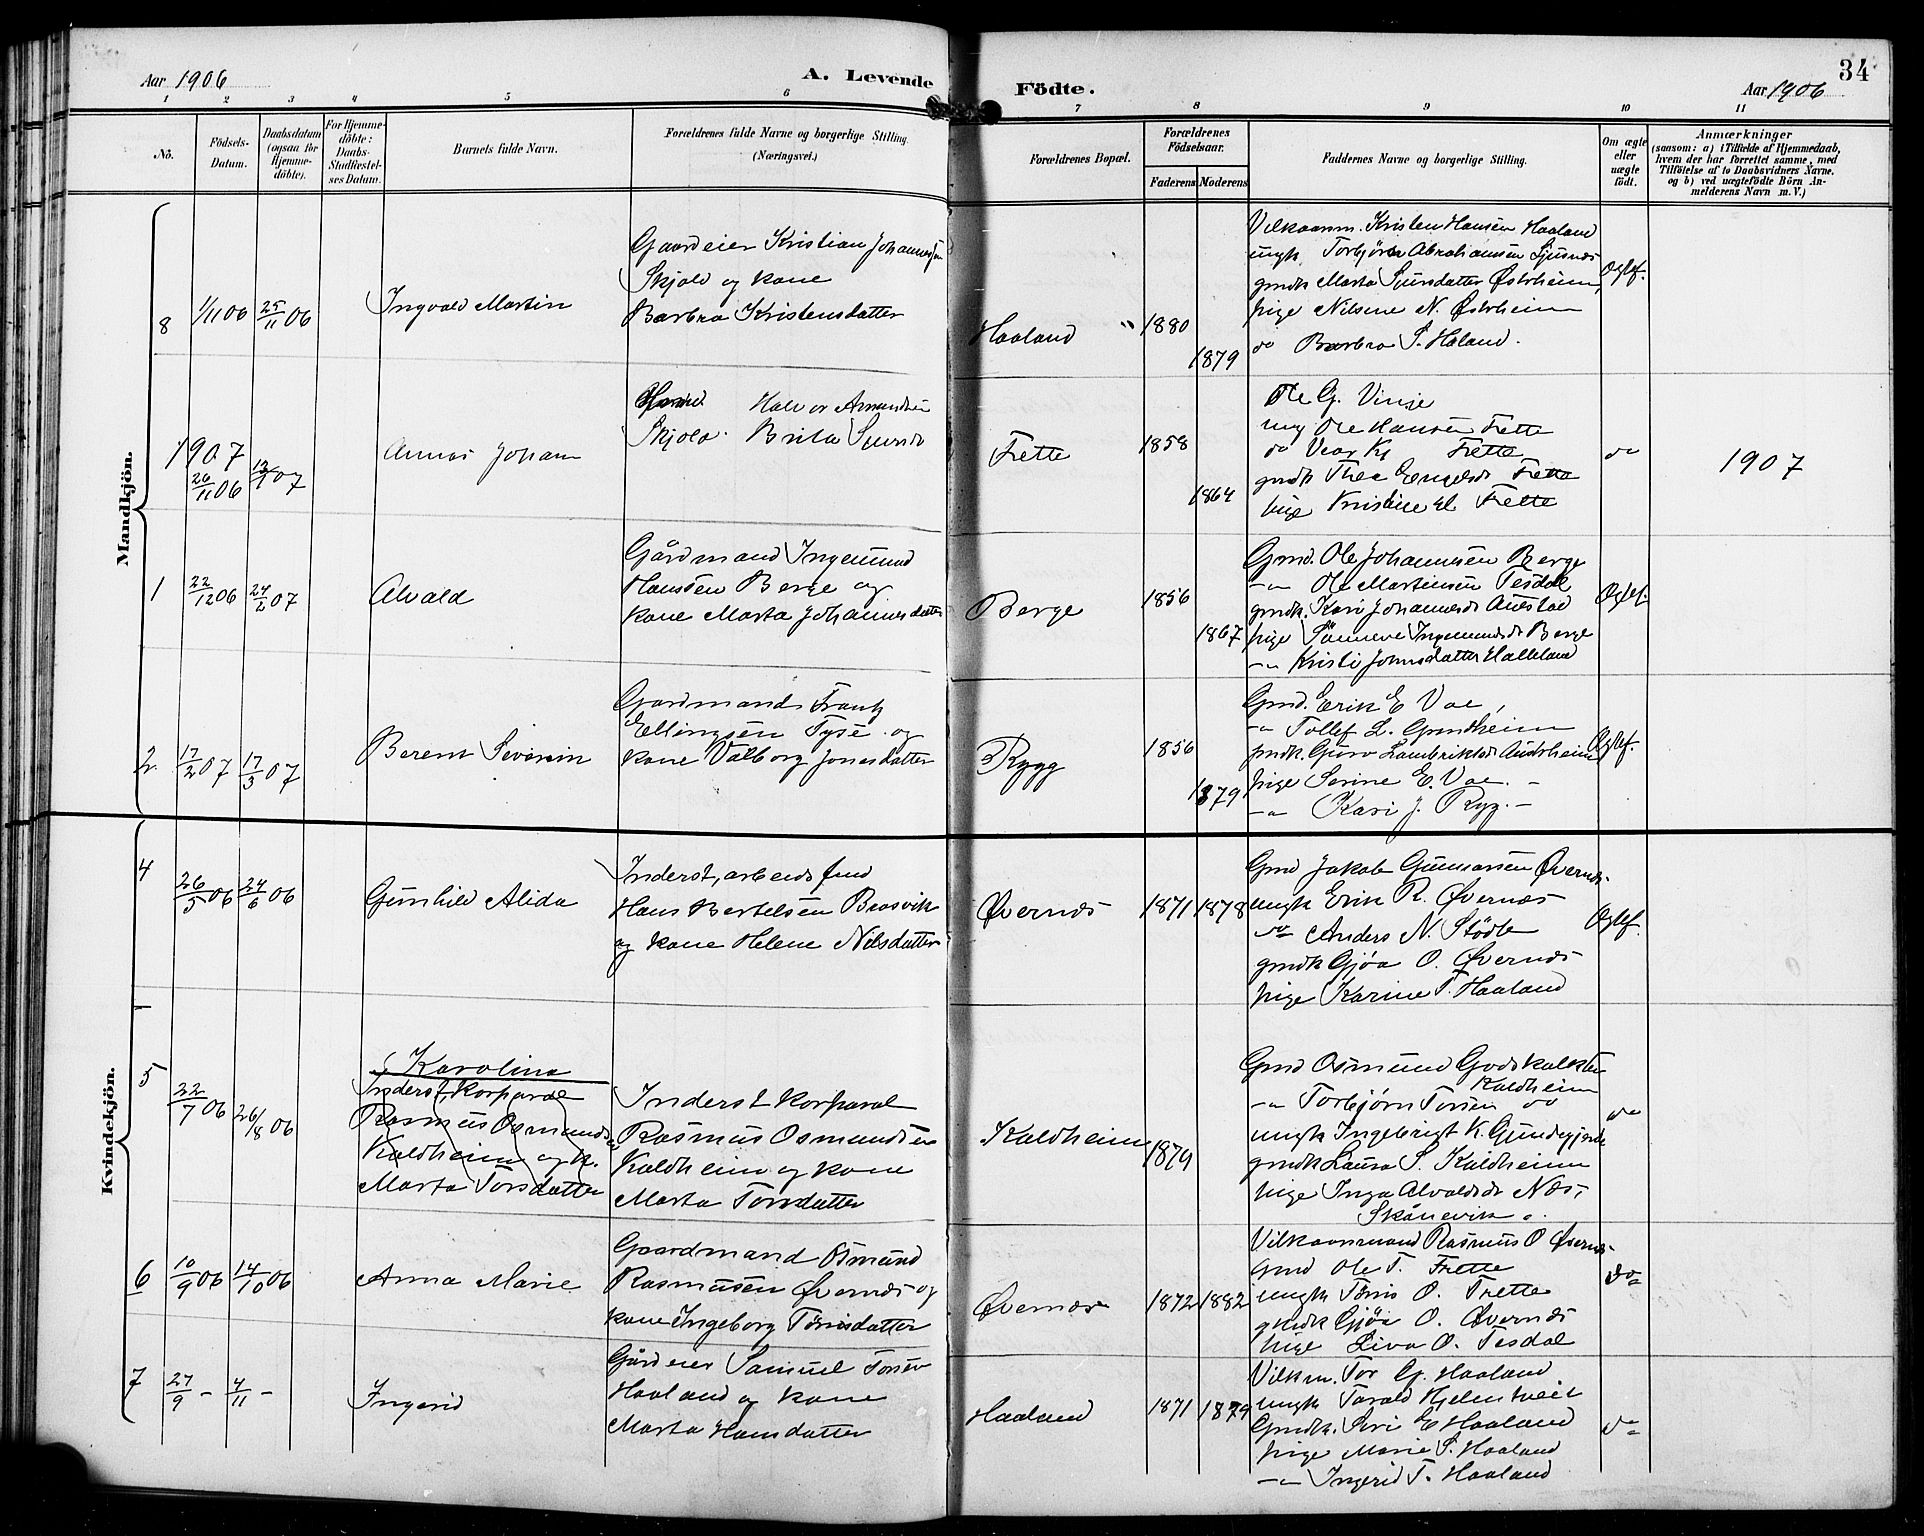 Aar 1906
A. Levende
Födte.
Aar 1906
34
1 2 3 4 5 6 7 8 9 10 11
No.
Födsels-Datum.
Daabsdatum (ogsaa for Hjemme-döbte).
For Hjemme-döbte: Daabs-Stadfæstel-ses Datum.
Barnets fulde Navn.
Forældrenes fulde Navne og borgerlige Stilling. (Næringsvei.)
Forældrenes Bopæl.
Forældrenes Födselsaar.
Faderens Moderens
Faddernes Navne og borgerlige Stilling.
Om ægte eller uægte födt.
Anmærkninger
(saasom: a) i Tilfælde af Hjemmedaab, hvem der har forrettet samme, med Tilföielse af to Daabsvidners Navne, og b) ved uægtefödte Börn An-melderens Navn m. V.)
Mandkjön.
8
1/11 06
25/11 06
Ingvald Martin
Gaardeier Kristian Johannessen
Skjold og kone
Barbra Kristensdatter
Haaland
1880
1879
Vilkaarm. Kristen Hansen Haaland
ungk Torbjörn Abrahamsen
gmdk Marta Sjursdatter Östrheim,
pige Nilsine N. Östrheim
do Barbra S. Haland.
Ægtef.
1907
26/11 06
13/1 07
Annas Johan
Halvor Amundsen
Skjold. Brita Sjursd
Frette
1858
1864
Ole G. Vinje
ung Ole Hansen Frette
do Frette
gmdk Thea Engelsd Frette
pige Kristine El. Frette
do
1907
1
22/12 06
24/2 07
Alvald
Gårdmand Ingemund
Hanssen Berge og
kone Marta Johannesdatter
Berge
1856
1867
Gmd. Ole Johannesen Berge
-"- Ole Martinsen Tesdal
gmdk. Kari Johannesd Austad
pige Sönneve Ingemundsd Berge
-"- Kristi Johnsdatter Halleland
Ægtef.
2.
17/2 07
17/3 07
Berent Severin
Gardmand Frantz
Ellingsen Tyse og
kone Valborg Jonesdatter
Rygg
1856
1879
Gmd. Erik E Vae,
-"- Tollef L. Grindheim
gmdk. Guro Lambriktsd Austrheim
pige Serine E. Vae. -
-"- Kari J. Ryg. -
Ægtef.
Kvindekjön.
4
26/5 06
24/6 06
Gunhild Alida
Inderst, arbeidsfmd
Hans Bertelsen Brasvik
og kone Helene Nilsdatter
Övernæs
1871 1878
Gmd Jakob Gunnarsen Övernæs.
ungk Erik R. Övernæs
do Anders N. Stödle
gmdk Gjöa O. Övernæs
pige Karine T. Haaland
Ægtef.
5
22/7 06
26/8 06
Karolina
Inderst, Korporal
Rasmus Osmundsen
Kaldheim og k.
Marta Torsdatter
Inderst korporal
Rasmus Osmundsen
Kaldheim og kone
Marta Torsdatter
Kaldheim
1879
Gmd Osmund Godskalksen
Kaldheim
-"- Torbjørn Torsen do
ungk Ingebrigt K. Gundegjerde
gmdk Laura S. Kaldheim
pige Inga Alvaldsd Næs,
Skånevik.
do
6
10/9 06
14/10 06
Anna Marie
Gaardmand Osmund
Rasmusen Övernæs og
kone Ingeborg Tönisdatter
Övernæs
1872 1882
Vilkaarmand Rasmus O Övernæs
Gmd Ole T. Frette
ungk Tönis O. Frette
gmdk Gjöa O. Övernæs
pige Liva O. Tesdal
do
7
27/9 -
4/11 -
Ingerid
Gårdeier Samuel Torsen
Haaland og kone
Marta Hansdatter
Haaland
1871 1879
Vilkm. Tor G. Haaland
ungk Tarald Hjelmtveit
Gmdk. Siri E Haaland
pige Marie S. Haaland
-"- Ingerid T. Haaland
do